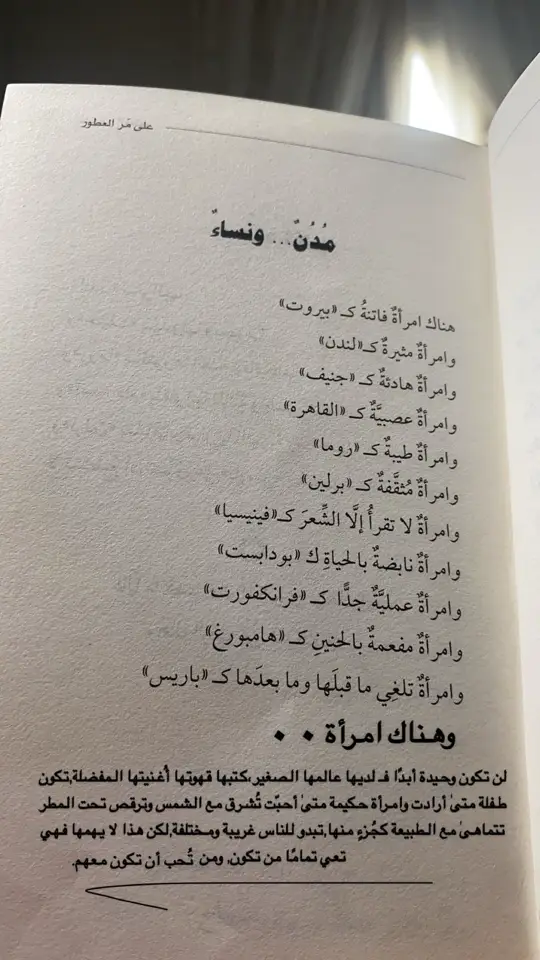 على مَر العطور
مُدُنٌ... ونساءٌ
هناك امرأةٌ فاتنةُ كـ «بيروت»
وامرأةٌ مثيرةٌ كـ«لندن»
وامرأةٌ هادئةٌ كـ «جنيف»
وامرأةٌ عصبيَّةٌ كـ «القاهرة»
وامرأةٌ طيبةٌ كـ «روما»
وامرأةٌ مُثقَّفةٌ كـ «برلين»
وامرأةٌ لا تقرأُ إلَّا الشِّعرَ كـ«فينيسيا»
وامرأةٌ نابضةٌ بالحياةِ ك «بودابست»
وامرأةٌ عمليَّةٌ جدًّا كـ «فرانكفورت»
وامرأةٌ مفعمةٌ بالحنينِ كـ «هامبورغ»
وامرأةٌ تلغِي ما قبلَها وما بعدَها كـ «باريس»
وهناك امرأة • •
لن تكون وحيدة أبدًا فـ لديها عالمها الصغير،كتبها قهوتها أغنيتها المفضلة,تكون
طفلة متىٰ أرادت وامرأة حكيمة متىٰ أحبّت تُشرق مع الشمس وترقص تحت المطر
تتماهىٰ مع الطبيعة كجُزءٍ منها,تبدو للناس غريبة ومختلفة,لكن هذا لا يهمها فهي
تعي تمامًا من تكون, ومن تُحب أن تكون معهم.